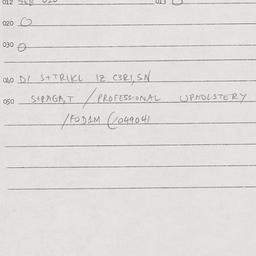 012 SEE 010 013
020
030
040 D1 S+TRIKL IZ C3R1,SN
050 S+PAGA,T / PROFESSIONAL UPHOLSTERY
/FOD1M (1049041